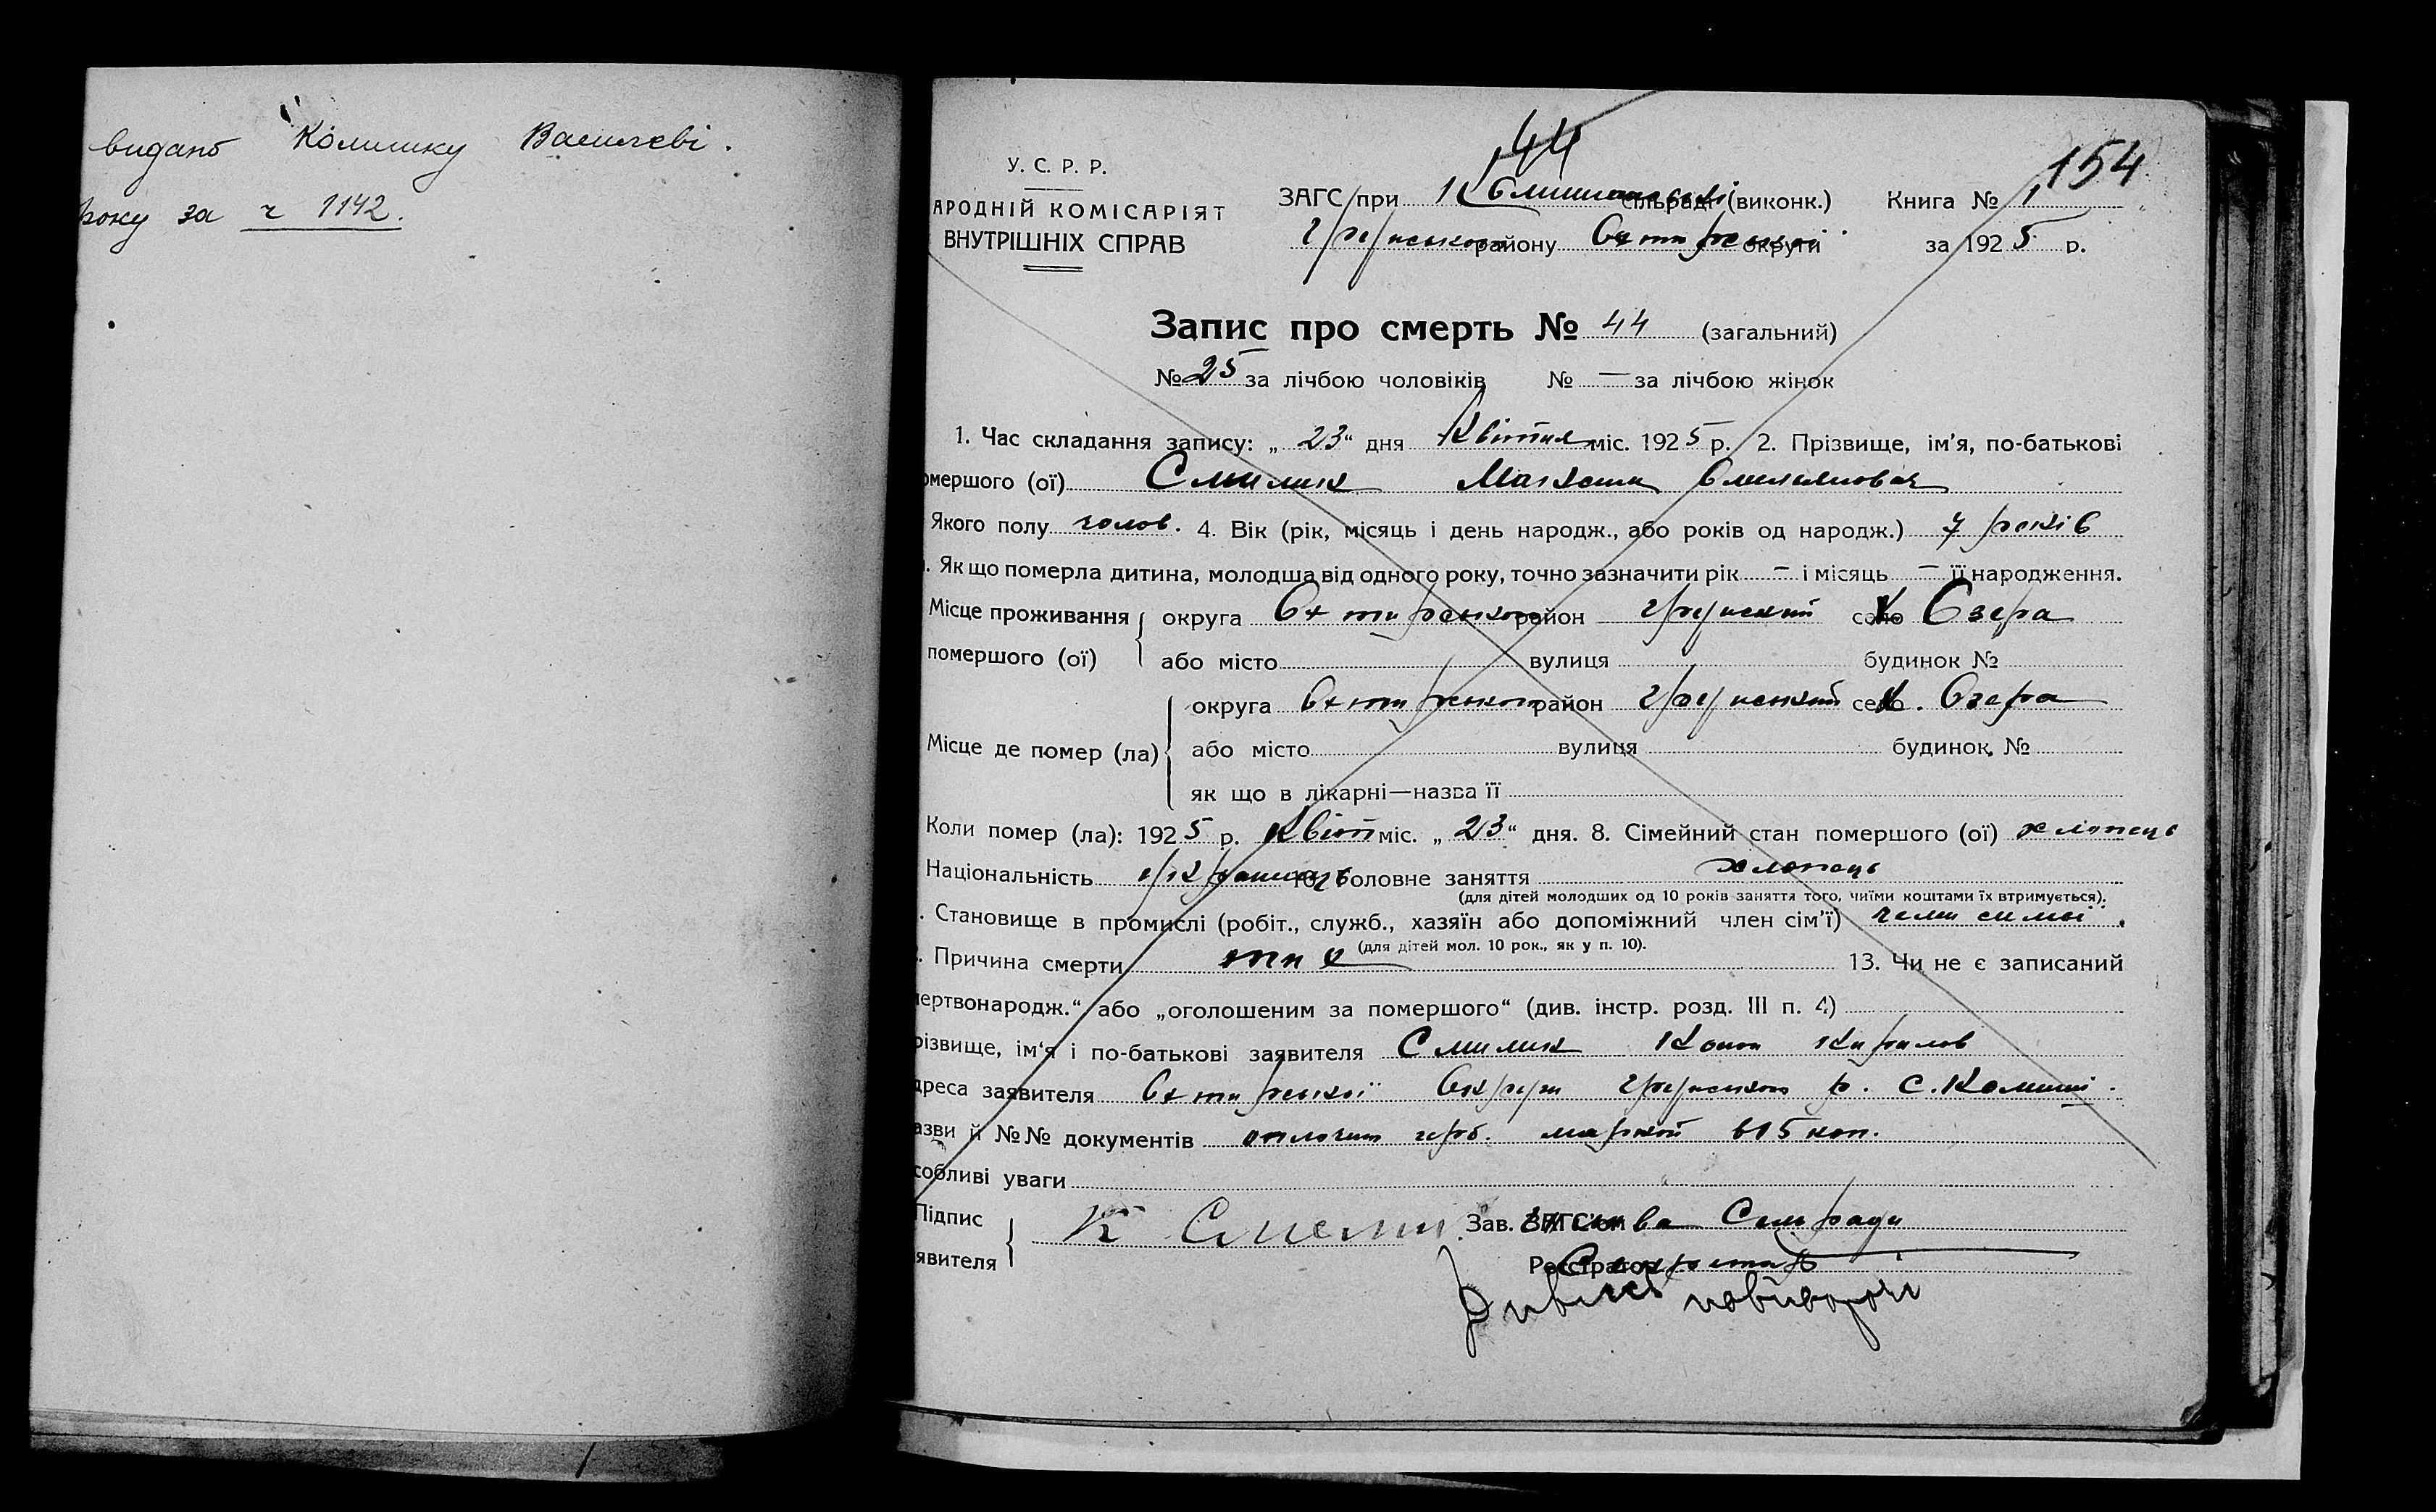 видано Колишку Василеві.
року за ч 1142.
44
154
У. С. Р. Р.
АРОДНІЙ КОМІСАРІЯТ
ВНУТРІШНІХ СПРАВ
ЗАГС при сільраді (виконк.) Книга № 1
району округи за 1925 р.
Запис про смерть № 44 (загальний)
№ 25 за лічбою чоловіків № — за лічбою жінок
1. Час складання запису: „ 23 “ дня Квітня міс. 1925 р. 2. Прізвище, ім’я, по-батькові
омершого (ої) Смилик Максим
Якого полу чолов. 4. Вік (рік, місяць і день народж., або років од народж.) 7 років
. Як що померла дитина, молодша від одного року, точно зазначити рік — і місяць — її народження.
Місце проживання округа Охтирського район Грунський село х Озера
помершого (ої) або місто вулиця будинок №
округа Охтирського район Грунський село х. Озера
Місце де помер (ла) або місто вулиця будинок №
як що в лікарні—назва її
Коли помер (ла): 1925 р. Квіт міс. „ 23 “ дня. 8. Сімейний стан помершого (ої) хлопець
Національність українець 10. Головне заняття хлопець
(для дітей молодших од 10 років заняття того, чиїми коштами їх втримується).
. Становище в промислі (робіт., служб., хазяїн або допоміжний член сім’ї) член симьї.
(для дітей мол. 10 рок., як у п. 10).
. Причина смерти тиф 13. Чи не є записаний
ертвонародж.“ або „оголошеним за помершого“ (див. інстр. розд. III п. 4)
різвище, ім’я і по-батькові заявителя Смилик Конон Кирилов
дреса заявителя Охтирської Округи Грунського р. С. Комиші.
азви й №№ документів оплочит герб. маркой в 15 коп.
собливі уваги
Підпис К Смели Зав. ЗАГС’ом Голова Сельради
явителя Реєстратор Секретар